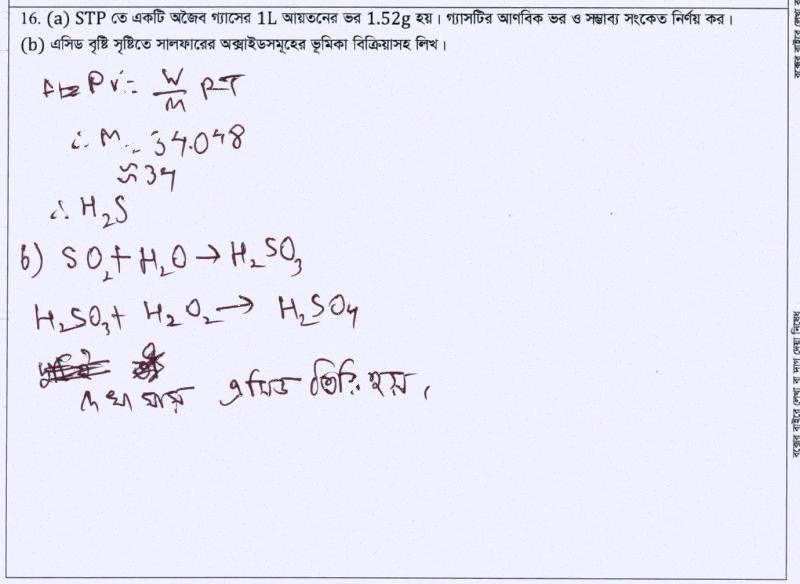 16. (a) STP তে একটি অজৈব গ্যাসের 1L আয়তনের ভর 1.52g হয়। গ্যাসটির আণবিক ভর ও সম্ভাব্য সংকেত নির্ণয় কর।
(b) এসিড বৃষ্টি সৃষ্টিতে সালফারের অক্সাইডসমূহের ভূমিকা বিক্রিয়াসহ লিখ।
PV = W/M RT
∴ M = 34.048
≈ 34
∴ H₂S
b) SO₂ + H₂O → H₂SO₃
H₂SO₃ + H₂O₂ → H₂SO₄
দেখা যায় এসিড তৈরি হয়।